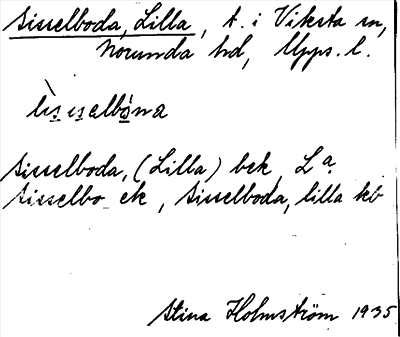 Sisselboda, Lilla, t. i Viksta sn,
Norunda hd, Upps. l.
Sisselboda, (Lilla) bek, L a.
Sisselbo ek, Sisselboda, lilla kb
Stina Holmström 1935